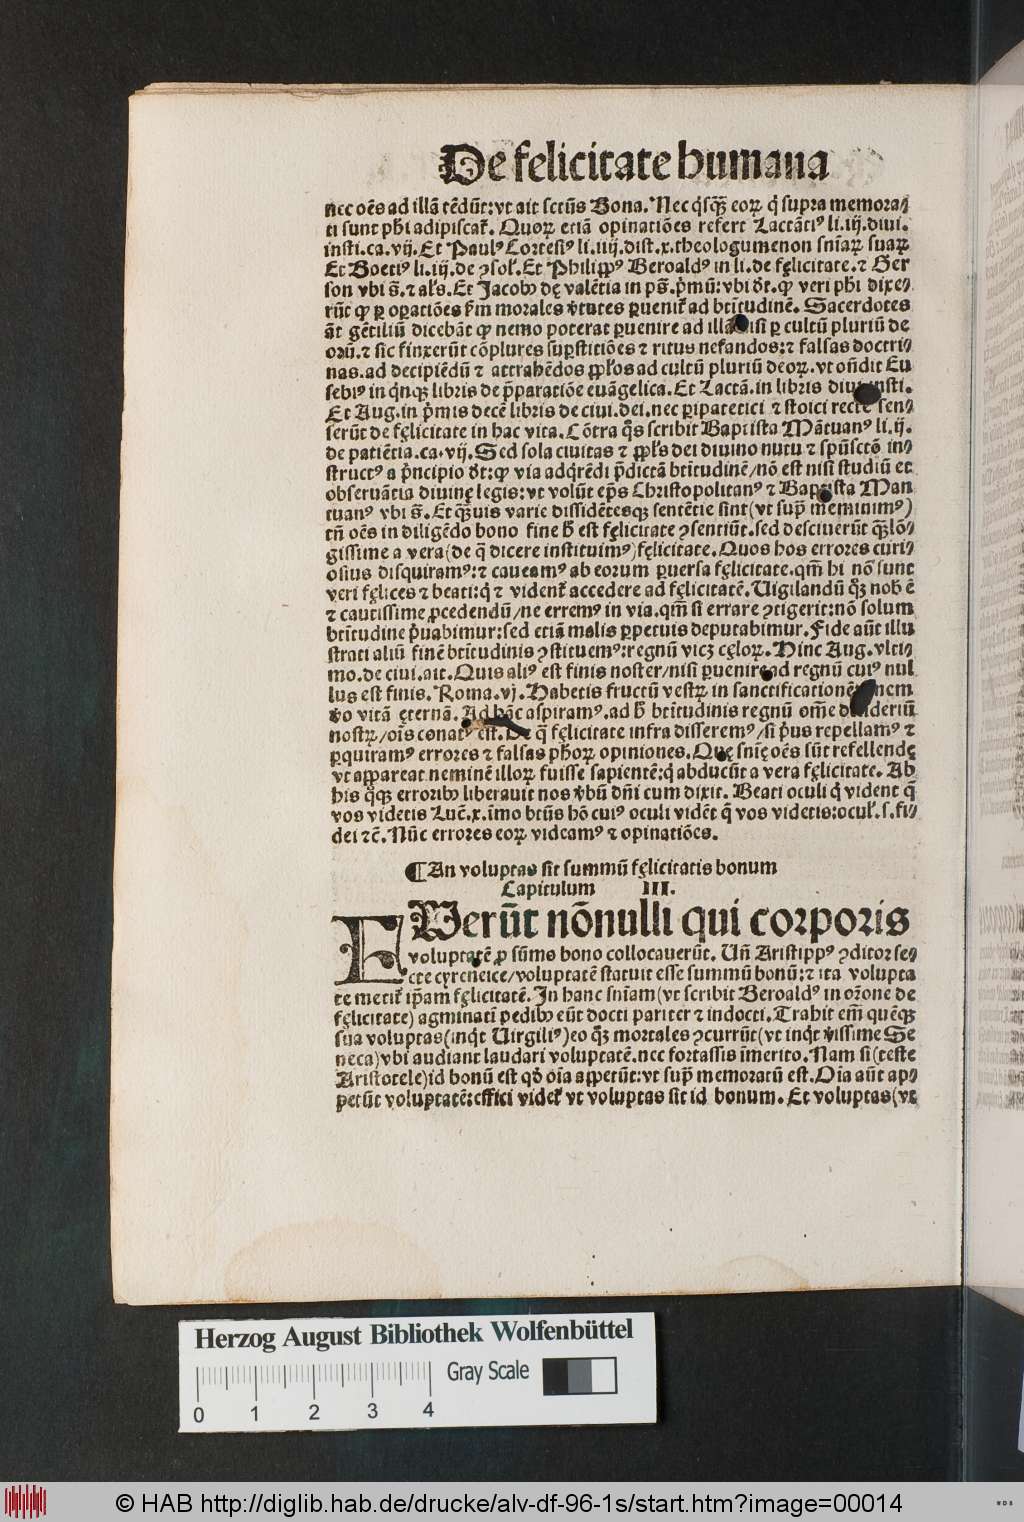 De felicitate humana
nec oēs ad illā tēdūt: vt ait sctūs Bona. Nec q̇sq̄ꝫ eoꝝ q̇ supra memora⸗
ti sunt phi̅ adipiscat᷑. Quoꝝ etiā opinatiōes refert Lactāti⁹ li. iij. diui.
insti. ca. vij. Et Paul⁹ Cortesi⁹ li. iiij. dist. x. theologumenon sn̄iaꝝ suaꝝ
Et Boeti⁹ li. iij. de ꝯsol̄. Et Philipp⁹ Beroald⁹ in li. de fęlicitate. ⁊ Ger
son vbi s̄. ⁊ al̄s. Et Jacob⁹ dę valētia in ps̄. p̄mū: vbi dt̄. ꝙ veri phi̅ dixe⸗
rūt ꝙ ꝑ oꝑatiōes ẜm morales v̓tutes ꝑuenit᷑ ad bt̄itudinē. Sacerdotes
āt gētiliū dicebāt ꝙ nemo poterat ꝑuenire ad illā nisi ꝑ cultū pluriū de
orū. ⁊ sic finxerūt cōplures suꝑstitiōes ⁊ ritus nefandos: ⁊ falsas doctri⸗
nas. ad decipiēdū ⁊ attrahēdos ꝓpl̄os ad cultū pluriū deoꝝ. vt on̄dit Eu
sebi⁹ in q̇nqꝫ libris de p̄paratiōe euāgelica. Et Lactā. in libris diui. insti.
Et Aug. in p̓mis decē libris de ciui. dei. nec ꝑipatetici ⁊ stoici recte sen⸗
serūt de fęlicitate in hac vita. Cōtra q̊s scribit Baptista Mātuan⁹ li. ij.
de patiētia. ca. vij. Sed sola ciuitas ⁊ ꝓpl̄s dei diuino nutu ⁊ spūsctō in⸗
struct⁹ a p̓ncipio dt̄: ꝙ via adq̇rēdi p̄dictā bt̄itudinē/ nō est nisi studiū et
obseruātia diuinę legis: vt volūt ep̄s Christopolitan⁹ ⁊ Baptista Man
tuan⁹ vbi s̄. Et q̄ꝫuis varie dissidētesqꝫ sentētie sint (vt supͣ meminim⁹)
tn̄ oēs in diligēdo bono fine h̄ est fęlicitate ꝯsentiūt. sed desciuerūt q̄ꝫlō⸗
gissime a vera (de q̄ dicere instituim⁹) fęlicitate. Quos hos errores curi⸗
osius disquiram⁹: ⁊ caueam⁹ ab eorum ꝑuersa fęlicitate. qm̄ hi nō sunt
veri fęlices ⁊ beati: q̇ ⁊ vident᷑ accedere ad fęlicitatē. Uigilandū q̊ꝫ nob̄ ē
⁊ cautissime ꝓcedendū/ ne errem⁹ in via. qm̄ si errare ꝯtigerit: nō solum
bt̄itudine p̓uabimur: sed etiā malis ꝑpetuis deputabimur. Fide aūt illu
strati aliū finē bt̄itudinis ꝯstituem⁹: regnū vicꝫ cęloꝝ. Hinc Aug. vlti⸗
mo. de ciui. ait. Quis ali⁹ est finis noster/ nisi ꝑuenire ad regnū cui⁹ nul
lus est finis. Roma. vj. Habetis fructū vestꝝ in sanctificationē: finem
v̓o vitā ęternā. Ad hāc aspiram⁹. ad h̄ bt̄itudinis regnū om̄e desideriū
nostꝝ/ ois̄ conat⁹ est. De q̄ fęlicitate infra disserem⁹/ si p̓us repellam⁹ ⁊
ꝑquiram⁹ errores ⁊ falsas ph̄oꝝ opiniones. Quę sn̄ię oēs sūt refellendę
vt appareat neminē illoꝝ fuisse sapientē: q̇ abducūt a vera fęlicitate. Ab
his q̄qꝫ errorib⁹ liberauit nos v̓bū dn̄i cum dixit. Beati oculi q̇ vident q̄
vos videtis Luē. x. īmo bt̄us hō cui⁹ oculi vidēt q̄ vos videtis: ocul̄. s. fi⸗
dei ⁊c̄. Nūc errores eoꝝ videam⁹ ⁊ opinatiōes.
¶ An voluptas sit summū fęlicitatis bonum
Capitulum III.
FUerūt nōnulli qui corporis
voluptatē ꝓ sūmo bono collocauerūt. Un̄ Aristipp⁹ ꝯditor se⸗
cte cyreneice/ voluptatē statuit esse summū bonū: ⁊ ita volupta
te metit᷑ ip̄am fęlicitatē. In hanc sn̄iam (vt scribit Beroald⁹ in or̄one de
fęlicitate) agminatī pedib⁹ eūt docti pariter ⁊ indocti. Trahit em̄ quēqꝫ
sua voluptas (inq̇t Uirgili⁹) eo q̊ꝫ mortales ꝯcurrūt (vt inq̇t v̓issime Se
neca) vbi audiant laudari voluptatē. nec fortassis īmerito. Nam si (teste
Aristotele) id bonū est qd̄ oīa appetūt: vt supͣ memoratū est. Oīa aūt ap⸗
petūt voluptatē: effici videt᷑ vt voluptas sit id bonum. Et voluptas (vt
Herzog August Bibliothek Wolfenbüttel
Gray Scale
0 1 2 3 4
© HAB http://diglib.hab.de/drucke/alv-df-96-1s/start.htm?image=00014